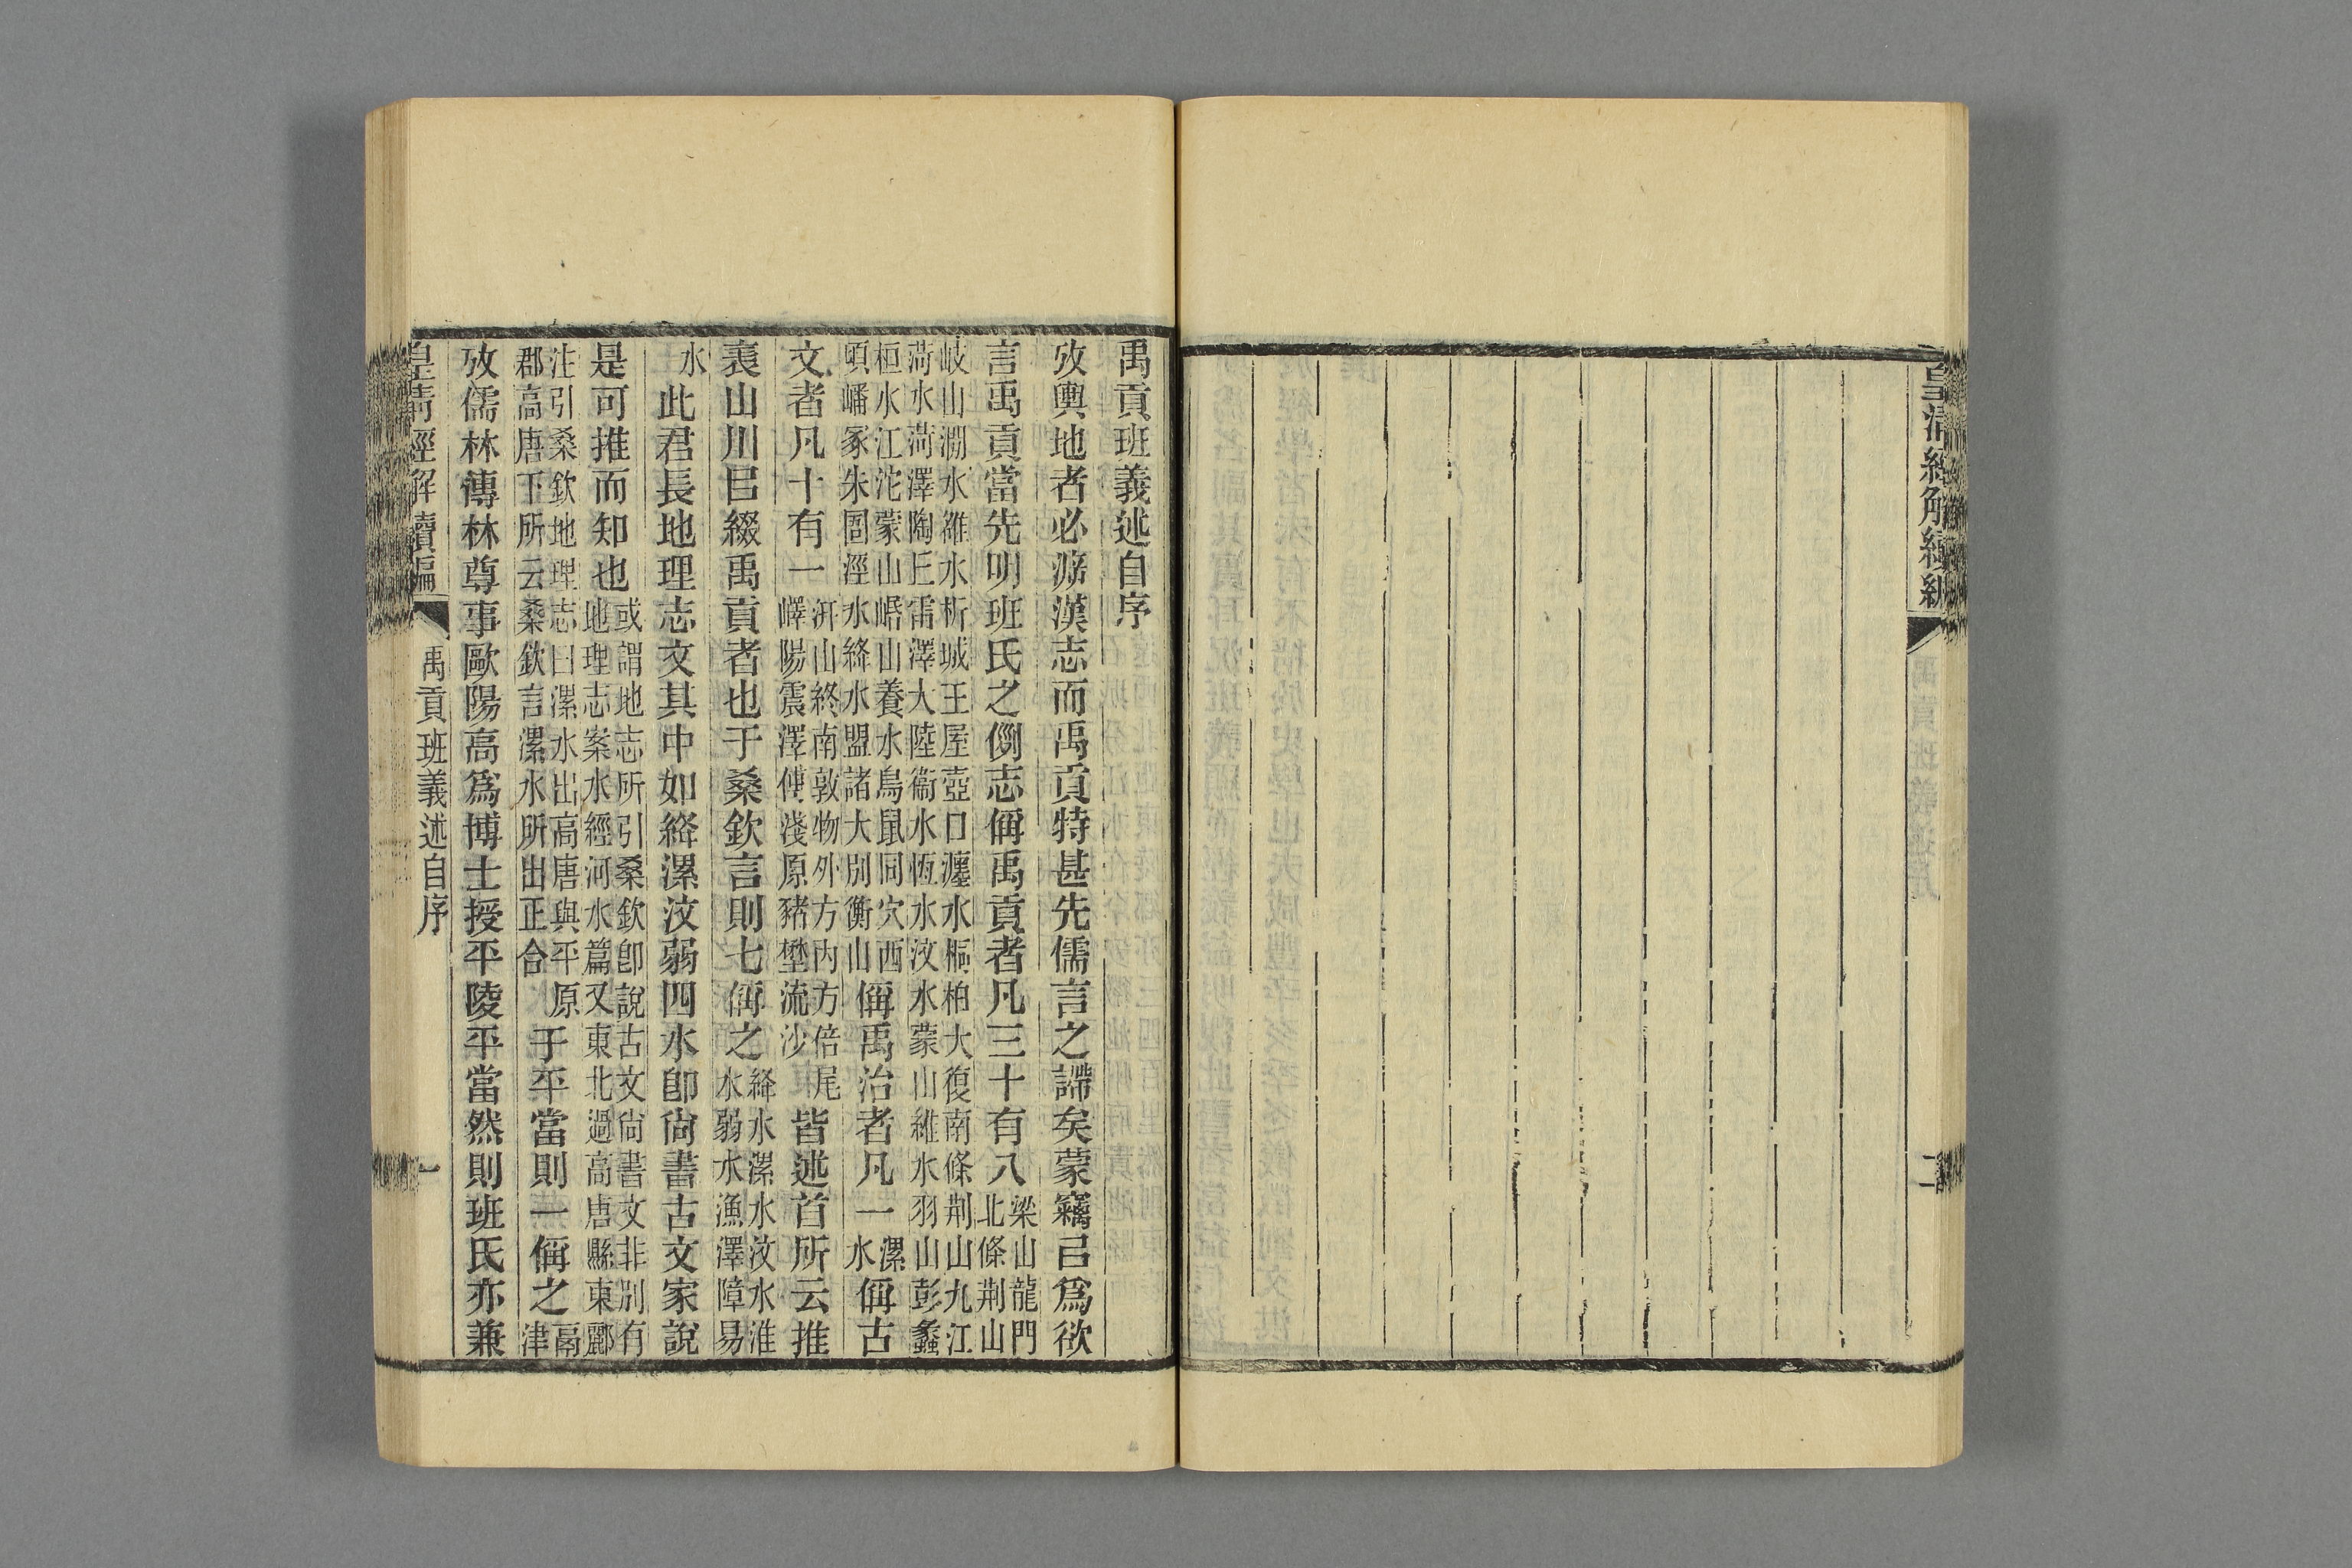 皇清經解續編
禹貢班義述自序
二
禹貢班義述自序
攷輿地者必漢志而禹貢特甚先儒言之諦矣蒙竊㠯爲欲
言禹貢當先明班氏之例志偁禹貢者凡三十有八梁山龍門北條荆山
岐山澗水雒水析城王屋壺口瀍水桐柏大復南條荆山九江
菏水菏澤陶丘雷澤大陸衞水恆水汶水蒙山維水羽山彭蠡
桓水江沱蒙山㟭山養水鳥鼠同穴西頃嶓冢朱圄涇水絳水盟諸大別衡山偁禹治者凡一漯水偁古
文者凡十有一汧山終南敦物外方内方倍尾嶧陽震澤傅淺原豬壄流沙皆述首所云推
裹山川㠯綴禹貢者也于桑欽言則七偁之絳水漯水汶水淮水弱水漁澤障易
水此君長地理志文其中如絳漯汶弱四水卽尙書古文家說
是可推而知也或謂地志所引桑欽卽說古文尙書文非別有地理志案水經河水篇又東北過高唐縣東酈
注引桑欽地理志曰漯水出高唐與平原郡高唐下所云桑欽言漯水所出正合于平當則一偁之鬲津
攷儒林傳林尊事歐陽高爲博士授平陵平當然則班氏亦兼
皇清經解續編
禹貢班義述自序
一